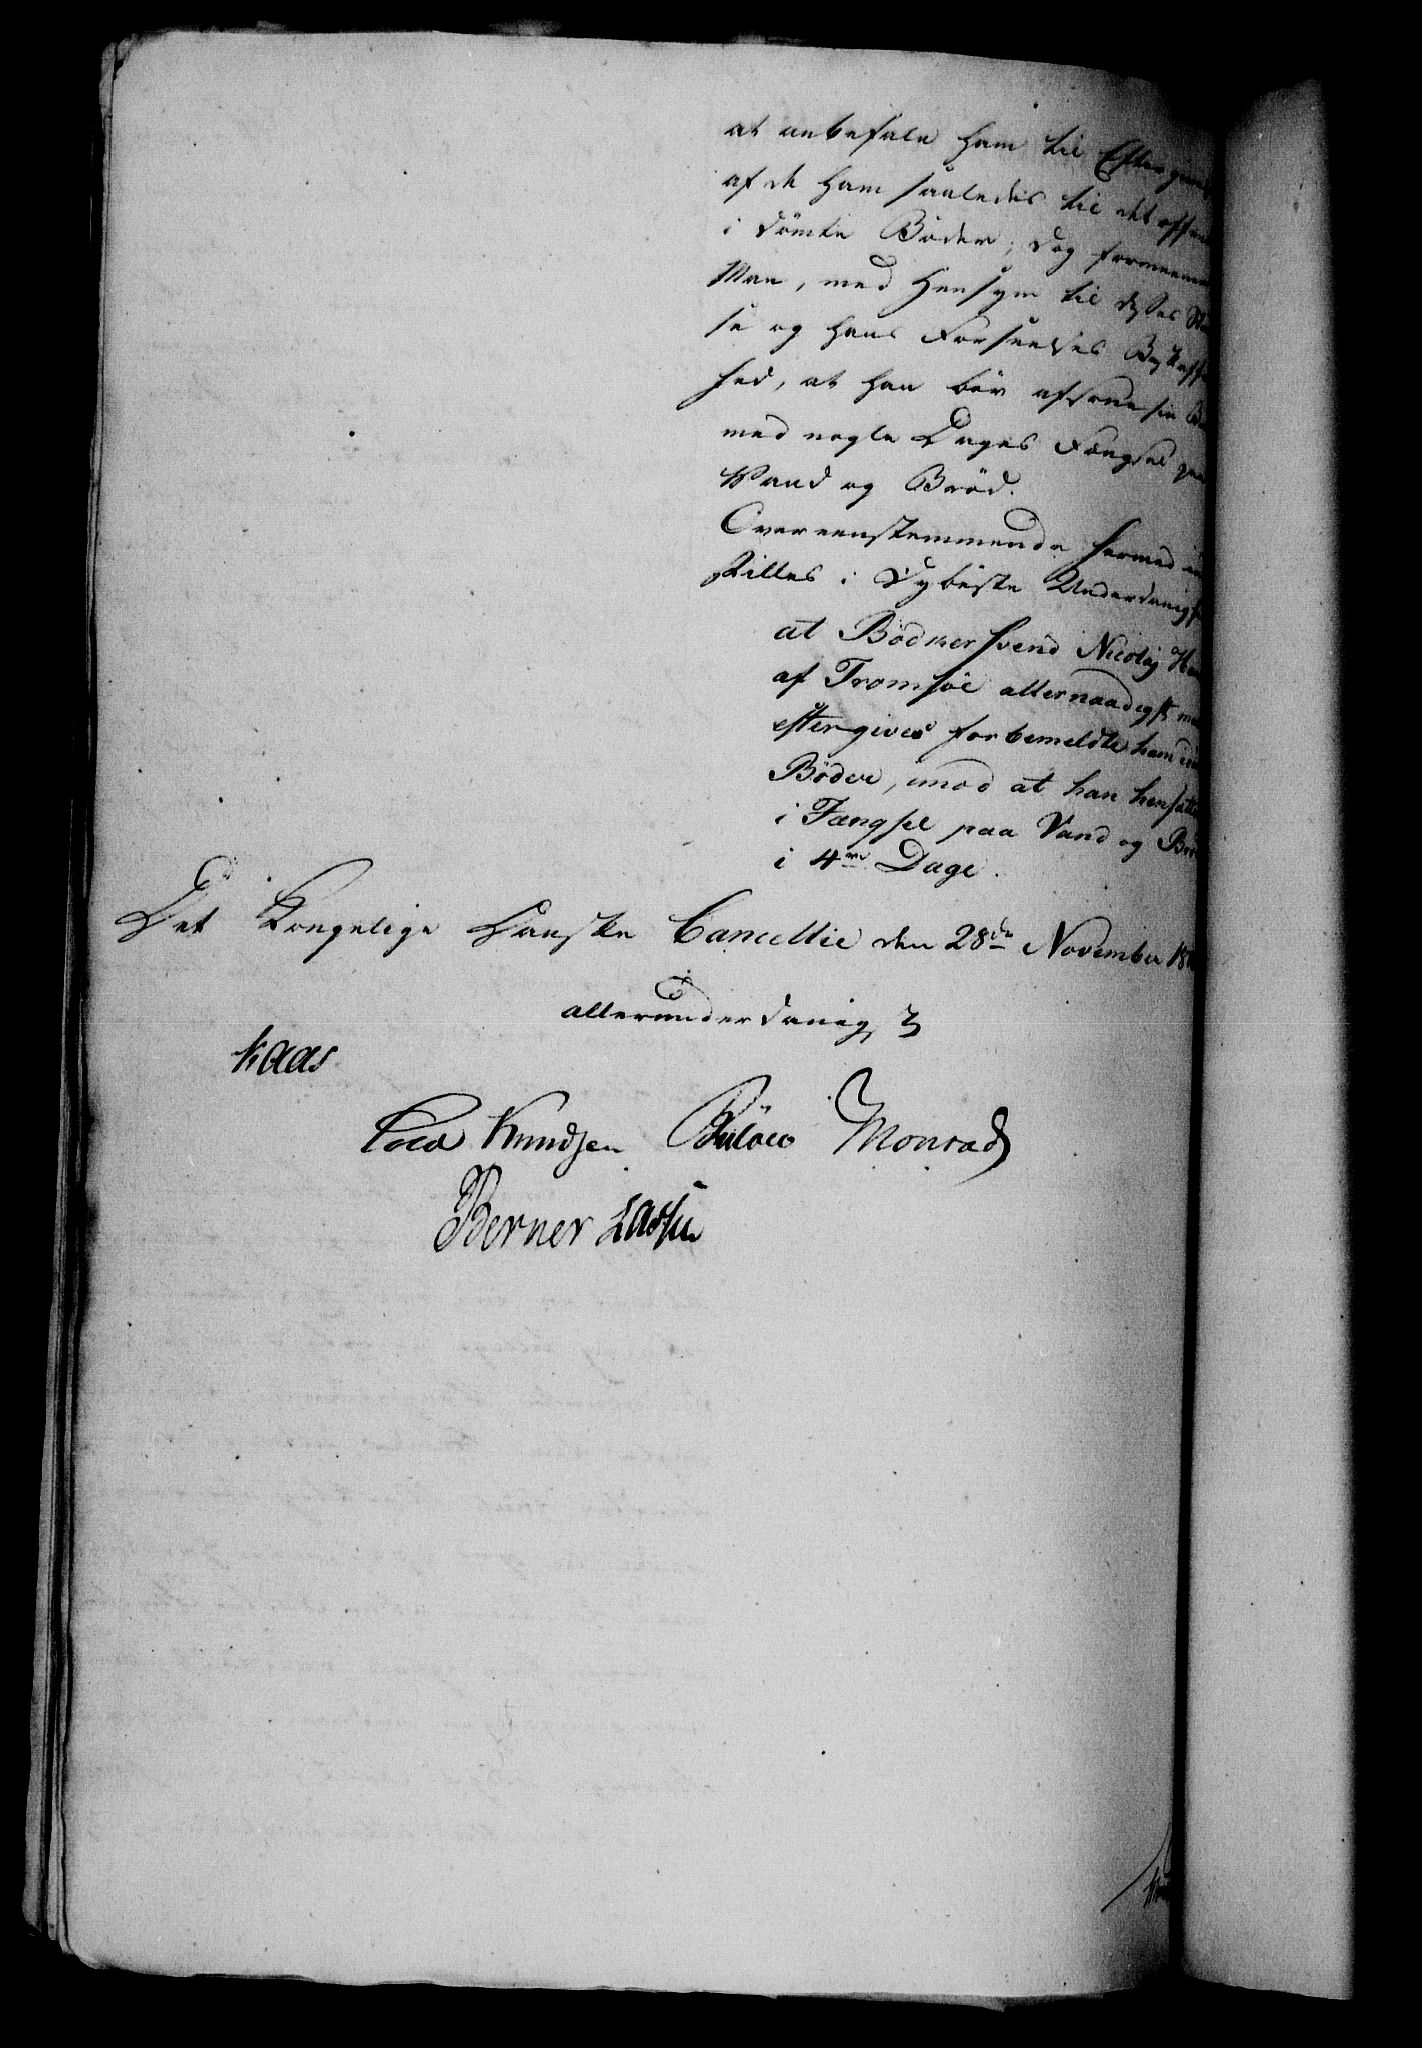 at anbefale ham til Eftergivel
af de ham saaledes til det offent
idømte Bøder; dog formeener
Man, med Hensyn til disses
se og hans Forseelses Beskaffen
hed, at han bør afsone sin
med nogle Dages Fængsel paa
Vand og Brød.
Overeensstemmende hermed ind
stilles i dybeste Underdanigh
at Bødkersvend Nicolaj Han
af Tromsøe allernaadigst maa
eftergives forbemeldte ham idøm
Bøder, imod at han hensættes
i Fængsel paa Vand og Brø
i 4re Dage.
Det Kongelige Danske Cancellie den 28de November 18
allerunderdanigst
Kaas
Cold Knudsen Bülow Monrad
Berner Lassen